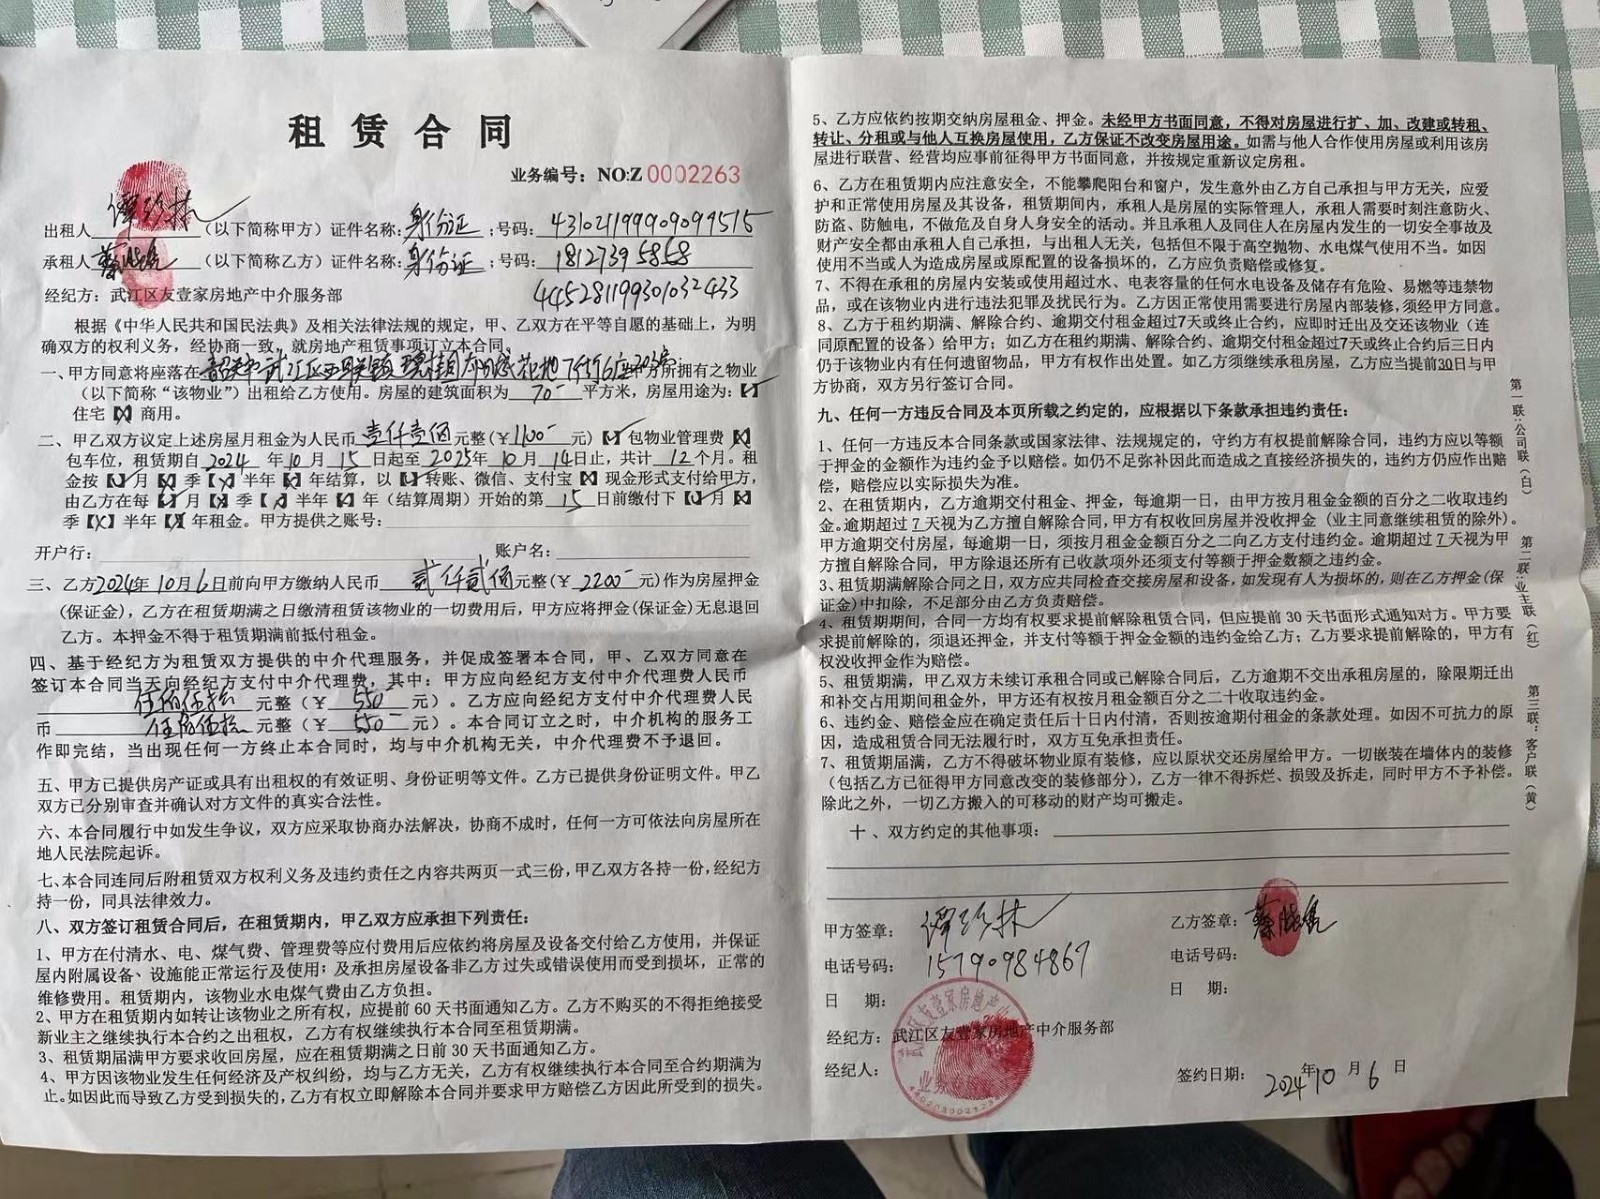 租赁合同
业务编号：NO:Z 0002263
出租人 谭（以下简称甲方）证件名称：身份证；号码：431021199909099515
承租人 蔡（以下简称乙方）证件名称：身份证；号码：18127395858
经纪方：武江区友壹家房地产中介服务部 445281199301032433
根据《中华人民共和国民法典》及相关法律法规的规定，甲、乙双方在平等自愿的基础上，为明
确双方的权利义务，经协商一致，就房地产租赁事项订立本合同。
一、甲方同意将座落在韶关市武江区西联镇碧桂园 花 203房甲方所拥有之物业
（以下简称“该物业”）出租给乙方使用。房屋的建筑面积为 70 平方米，房屋用途为：【✓】
住宅【X】商用。
二、甲乙双方议定上述房屋月租金为人民币 壹仟壹佰 元整（￥1100 元）【✓】包物业管理费【X】
包车位，租赁期自 2024 年 10 月 15 日起至 2025 年 10 月 14 日止，共计 12 个月。租
金按【✓】月【X】季【X】半年【X】年结算，以【✓】转账、微信、支付宝【X】现金形式支付给甲方，
由乙方在每【✓】月【X】季【X】半年【X】年（结算周期）开始的第 15 日前缴付下【✓】月【X】
季【X】半年【X】年租金。甲方提供之账号：
开户行： 账户名：
三、乙方2024年10月6日前向甲方缴纳人民币 贰仟贰佰 元整（￥ 2200 元）作为房屋押金
（保证金），乙方在租赁期满之日缴清租赁该物业的一切费用后，甲方应将押金（保证金）无息退回
乙方。本押金不得于租赁期满前抵付租金。
四、基于经纪方为租赁双方提供的中介代理服务，并促成签署本合同，甲、乙双方同意在
签订本合同当天向经纪方支付中介代理费，其中：甲方应向经纪方支付中介代理费人民币
伍佰伍拾 元整（￥ 550 元）。乙方应向经纪方支付中介代理费人民
币 伍佰伍拾 元整（￥ 550 元）。本合同订立之时，中介机构的服务工
作即完结，当出现任何一方终止本合同时，均与中介机构无关，中介代理费不予退回。
五、甲方已提供房产证或具有出租权的有效证明、身份证明等文件。乙方已提供身份证明文件。甲乙
双方已分别审查并确认对方文件的真实合法性。
六、本合同履行中如发生争议，双方应采取协商办法解决，协商不成时，任何一方可依法向房屋所在
地人民法院起诉。
七、本合同连同后附租赁双方权利义务及违约责任之内容共两页一式三份，甲乙双方各持一份，经纪方
持一份，同具法律效力。
八、双方签订租赁合同后，在租赁期内，甲乙双方应承担下列责任：
1、甲方在付清水、电、煤气费、管理费等应付费用后应依约将房屋及设备交付给乙方使用，并保证
屋内附属设备、设施能正常运行及使用；及承担房屋设备非乙方过失或错误使用而受到损坏，正常的
维修费用。租赁期内，该物业水电煤气费由乙方负担。
2、甲方在租赁期内如转让该物业之所有权，应提前60天书面通知乙方。乙方不购买的不得拒绝接受
新业主之继续执行本合约之出租权，乙方有权继续执行本合同至租赁期满。
3、租赁期届满甲方要求收回房屋，应在租赁期满之日前30天书面通知乙方。
4、甲方因该物业发生任何经济及产权纠纷，均与乙方无关，乙方有权继续执行本合同至合约期满为
止。如因此而导致乙方受到损失的，乙方有权立即解除本合同并要求甲方赔偿乙方因此所受到的损失。
5、乙方应依约按期交纳房屋租金、押金。未经甲方书面同意，不得对房屋进行扩、加、改建或转租、
转让、分租或与他人互换房屋使用，乙方保证不改变房屋用途。如需与他人合作使用房屋或利用该房
屋进行联营、经营均应事前征得甲方书面同意，并按规定重新议定房租。
6、乙方在租赁期内应注意安全，不能攀爬阳台和窗户，发生意外由乙方自己承担与甲方无关，应爱
护和正常使用房屋及其设备，租赁期间内，承租人是房屋的实际管理人，承租人需要时刻注意防火、
防盗、防触电，不做危及自身人身安全的活动。并且承租人及同住人在房屋内发生的一切安全事故及
财产安全都由承租人自己承担，与出租人无关，包括但不限于高空抛物、水电煤气使用不当。如因
使用不当或人为造成房屋或原配置的设备损坏的，乙方应负责赔偿或修复。
7、不得在承租的房屋内安装或使用超过水、电表容量的任何水电设备及储存有危险、易燃等违禁物
品，或在该物业内进行违法犯罪及扰民行为。乙方因正常使用需要进行房屋内部装修，须经甲方同意。
8、乙方于租约期满、解除合约、逾期交付租金超过7天或终止合约，应即时迁出及交还该物业（连
同原配置的设备）给甲方；如乙方在租约期满、解除合约、逾期交付租金超过7天或终止合约后三日内
仍于该物业内有任何遗留物品，甲方有权作出处置。如乙方须继续承租房屋，乙方应当提前30日与甲
方协商，双方另行签订合同。
九、任何一方违反合同及本页所载之约定的，应根据以下条款承担违约责任：
1、任何一方违反本合同条款或国家法律、法规规定的，守约方有权提前解除合同，违约方应以等额
于押金的金额作为违约金予以赔偿。如仍不足弥补因此而造成之直接经济损失的，违约方仍应作出赔
偿，赔偿应以实际损失为准。
2、在租赁期内，乙方逾期交付租金、押金，每逾期一日，由甲方按月租金金额的百分之二收取违约
金。逾期超过7天视为乙方擅自解除合同，甲方有权收回房屋并没收押金（业主同意继续租赁的除外）。
甲方逾期交付房屋，每逾期一日，须按月租金金额百分之二向乙方支付违约金。逾期超过7天视为甲
方擅自解除合同，甲方除退还所有已收款项外还须支付等额于押金数额之违约金。
3、租赁期满解除合同之日，双方应共同检查交接房屋和设备，如发现有人为损坏的，则在乙方押金(保
证金)中扣除，不足部分由乙方负责赔偿。
4、租赁期期间，合同一方均有权要求提前解除租赁合同，但应提前30天书面形式通知对方。甲方要
求提前解除的，须退还押金，并支付等额于押金金额的违约金给乙方；乙方要求提前解除的，甲方有
权没收押金作为赔偿。
5、租赁期满，甲乙双方未续订承租合同或已解除合同后，乙方逾期不交出承租房屋的，除限期迁出
和补交占用期间租金外，甲方还有权按月租金额百分之二十收取违约金。
6、违约金、赔偿金应在确定责任后十日内付清，否则按逾期付租金的条款处理。如因不可抗力的原
因，造成租赁合同无法履行时，双方互免承担责任。
7、租赁期届满，乙方不得破坏物业原有装修，应以原状交还房屋给甲方。一切嵌装在墙体内的装修
（包括乙方已征得甲方同意改变的装修部分），乙方一律不得拆烂、损毁及拆走，同时甲方不予补偿。
除此之外，一切乙方搬入的可移动的财产均可搬走。
十、双方约定的其他事项：
甲方签章：谭 乙方签章：蔡
电话号码：15790984867 电话号码：
日 期： 日 期：
经纪方：武江区友壹家房地产中介服务部
经纪人： 签约日期：2024年10月6日
第一联：公司联（白）
第二联：业主联（红）
第三联：客户联（黄）